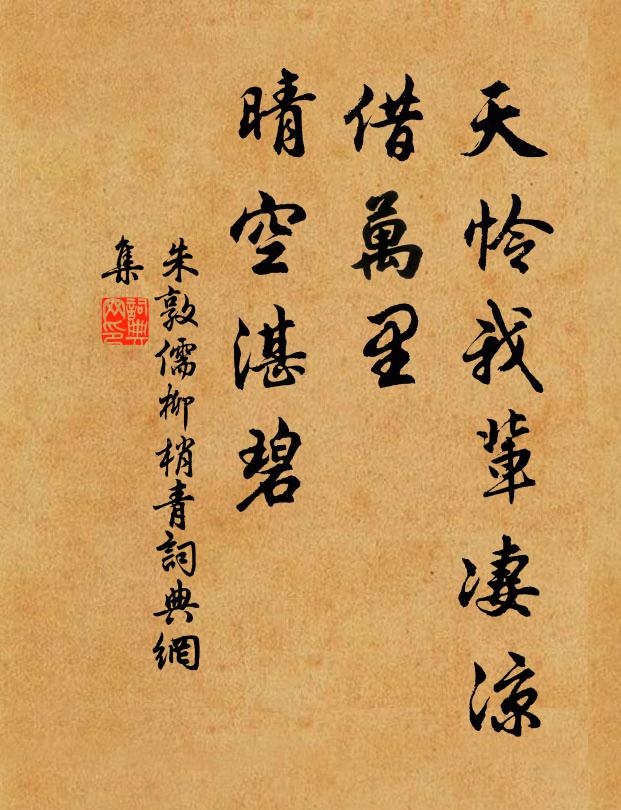 天怜我輩凄涼
借萬里
晴空湛碧
朱敦儒柳梢青詞典網
集
詞典网印